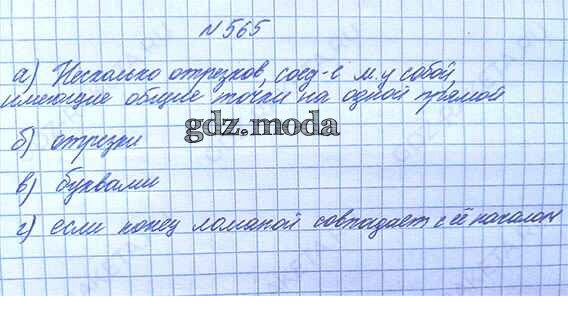 N 565
а) Несколько отрезков, соед-е м.у собой,
имеющие общие точки на одной прямой
б) отрезки
gdz.moda
в) буквами
г) если конец ломаной совпадает с её началом